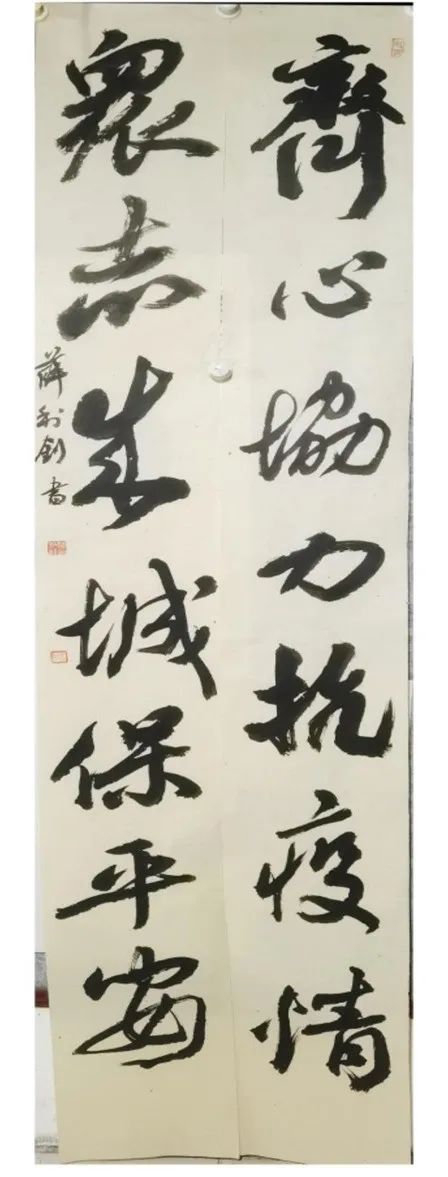 齊心協力抗疫情
衆志成城保平安
薛利釗書